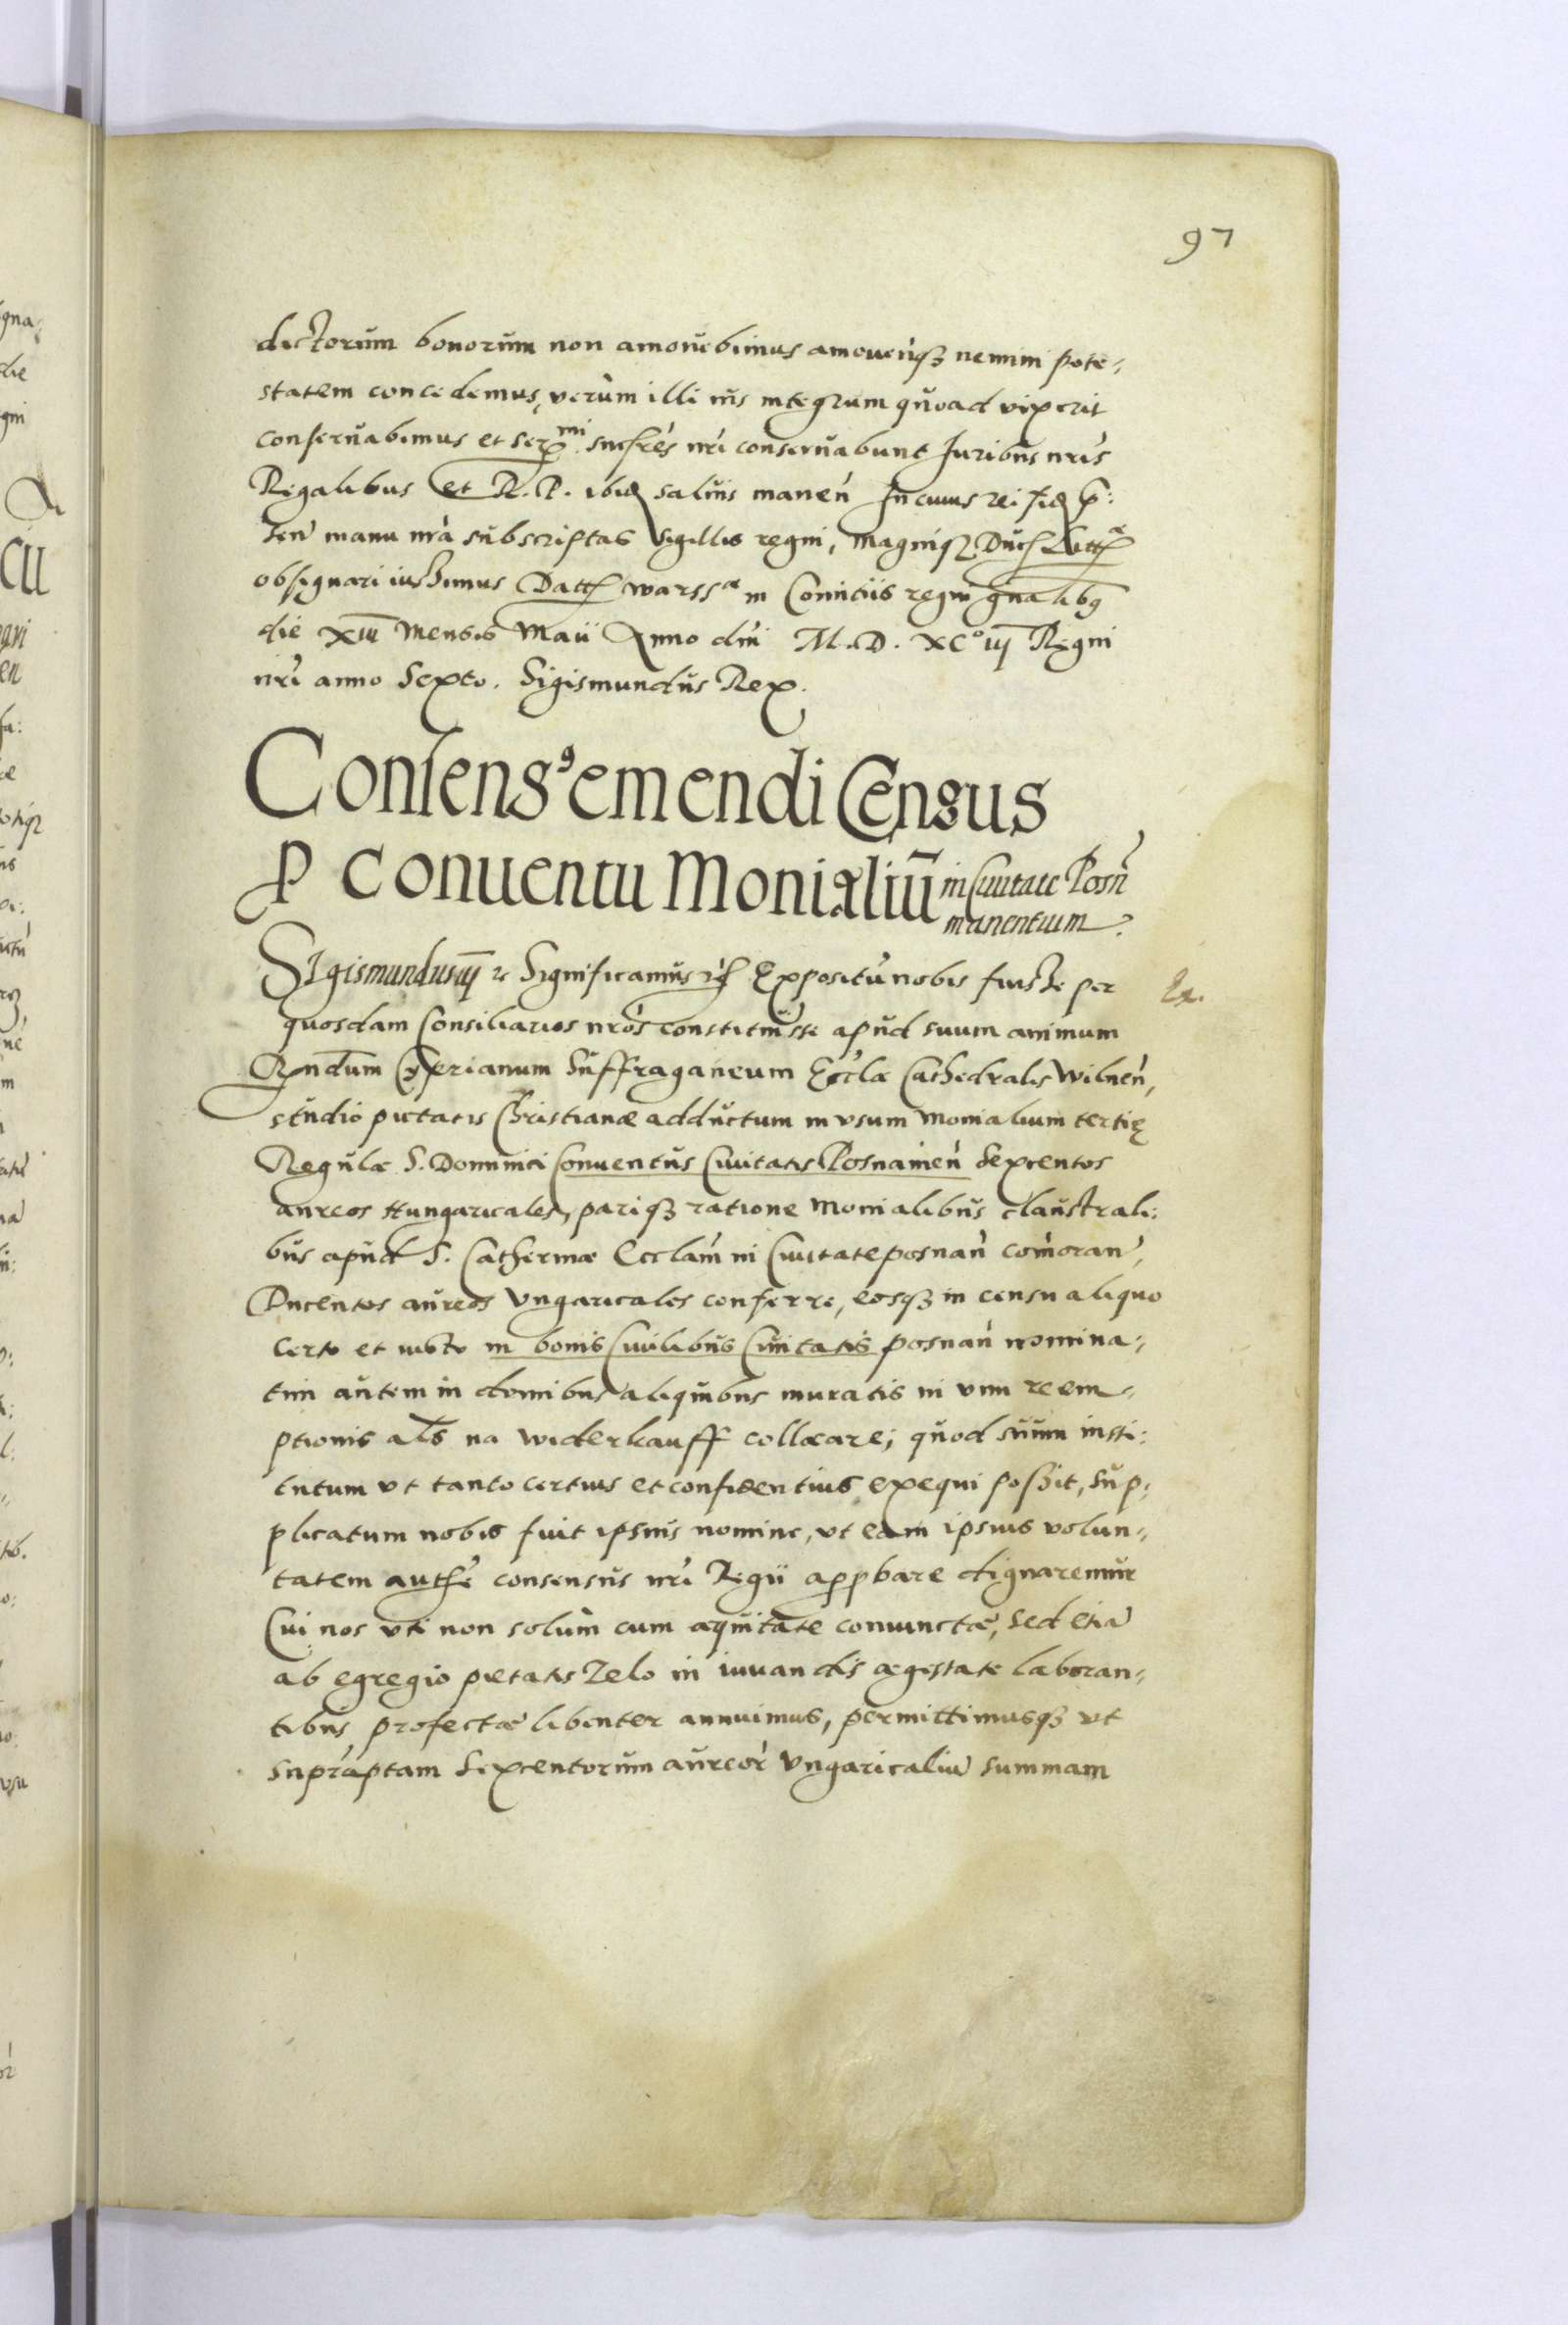 97
dictorum bonorum non amouebimus amouendiq3 nemini pote-
statem concedemus, verùm illi ius integrum quoad vixerit
conseruabimus et Ser.mi succrês nri conseruabunt Juribus nris
Regalibus et R. P. ibid saluis manen̄ In cuius rei fid p̄:
sen̄ manu nrà subscriptas sigillis regni, magniq3 Duc Litt
obsignari iussimus Datt warssæ in Comitiis regni gnalibus
die XIII Mensis Maii Anno dni M.D. XC° iij Regni
nri anno Sexto. Sigismundus Rex.
Consens9 emendi Census
P Conuentu Monialiū in Ciuitate Posn̄
manentium.
Sigismundus iij &c Significamus Expositū nobis fuisse per
Ex.
quosdam Consiliarios nros constituisse apud suum animum
Rndum Cyprianum Suffraganeum Eccłæ Cathedralis Wilnen̄,
studio pietatis Christianæ adductum in vsum Monialium tertię
Regulæ S. Dominici Conuentus Ciuitatis Posnanien̄ Sexcentos
aureos Hungaricales, pariq3 ratione Monialibus claustrali:
bus apud S. Catherinæ Ecclam in Ciuitate posnan̄ comoran̄,
Ducentos aureos Vngaricales conferre, eosq3 in censu aliquo
certo et iusto in bonis Ciuilibus Ciuitatis posnan̄ nomina-
tim autem in domibus aliquibus muratis in vim reem-
ptionis als na widerkauff collocare; quod suum insti:
tutum vt tanto certius et confidentius exequi possit, sup:
plicatum nobis fuit ipsius nomine, vt eam ipsius volun-
tatem authe consensus nri Regii appbare dignaremur
Cui nos vti non solùm cum æquitate coniunctæ, sed etiā
ab egregio pietatis Zelo in iuuandis ægestate laboran-
tibus profectæ libenter annuimus, permittimusq3 vt
supràptam Sexcentorum aureor̄ Vngaricaliū summam